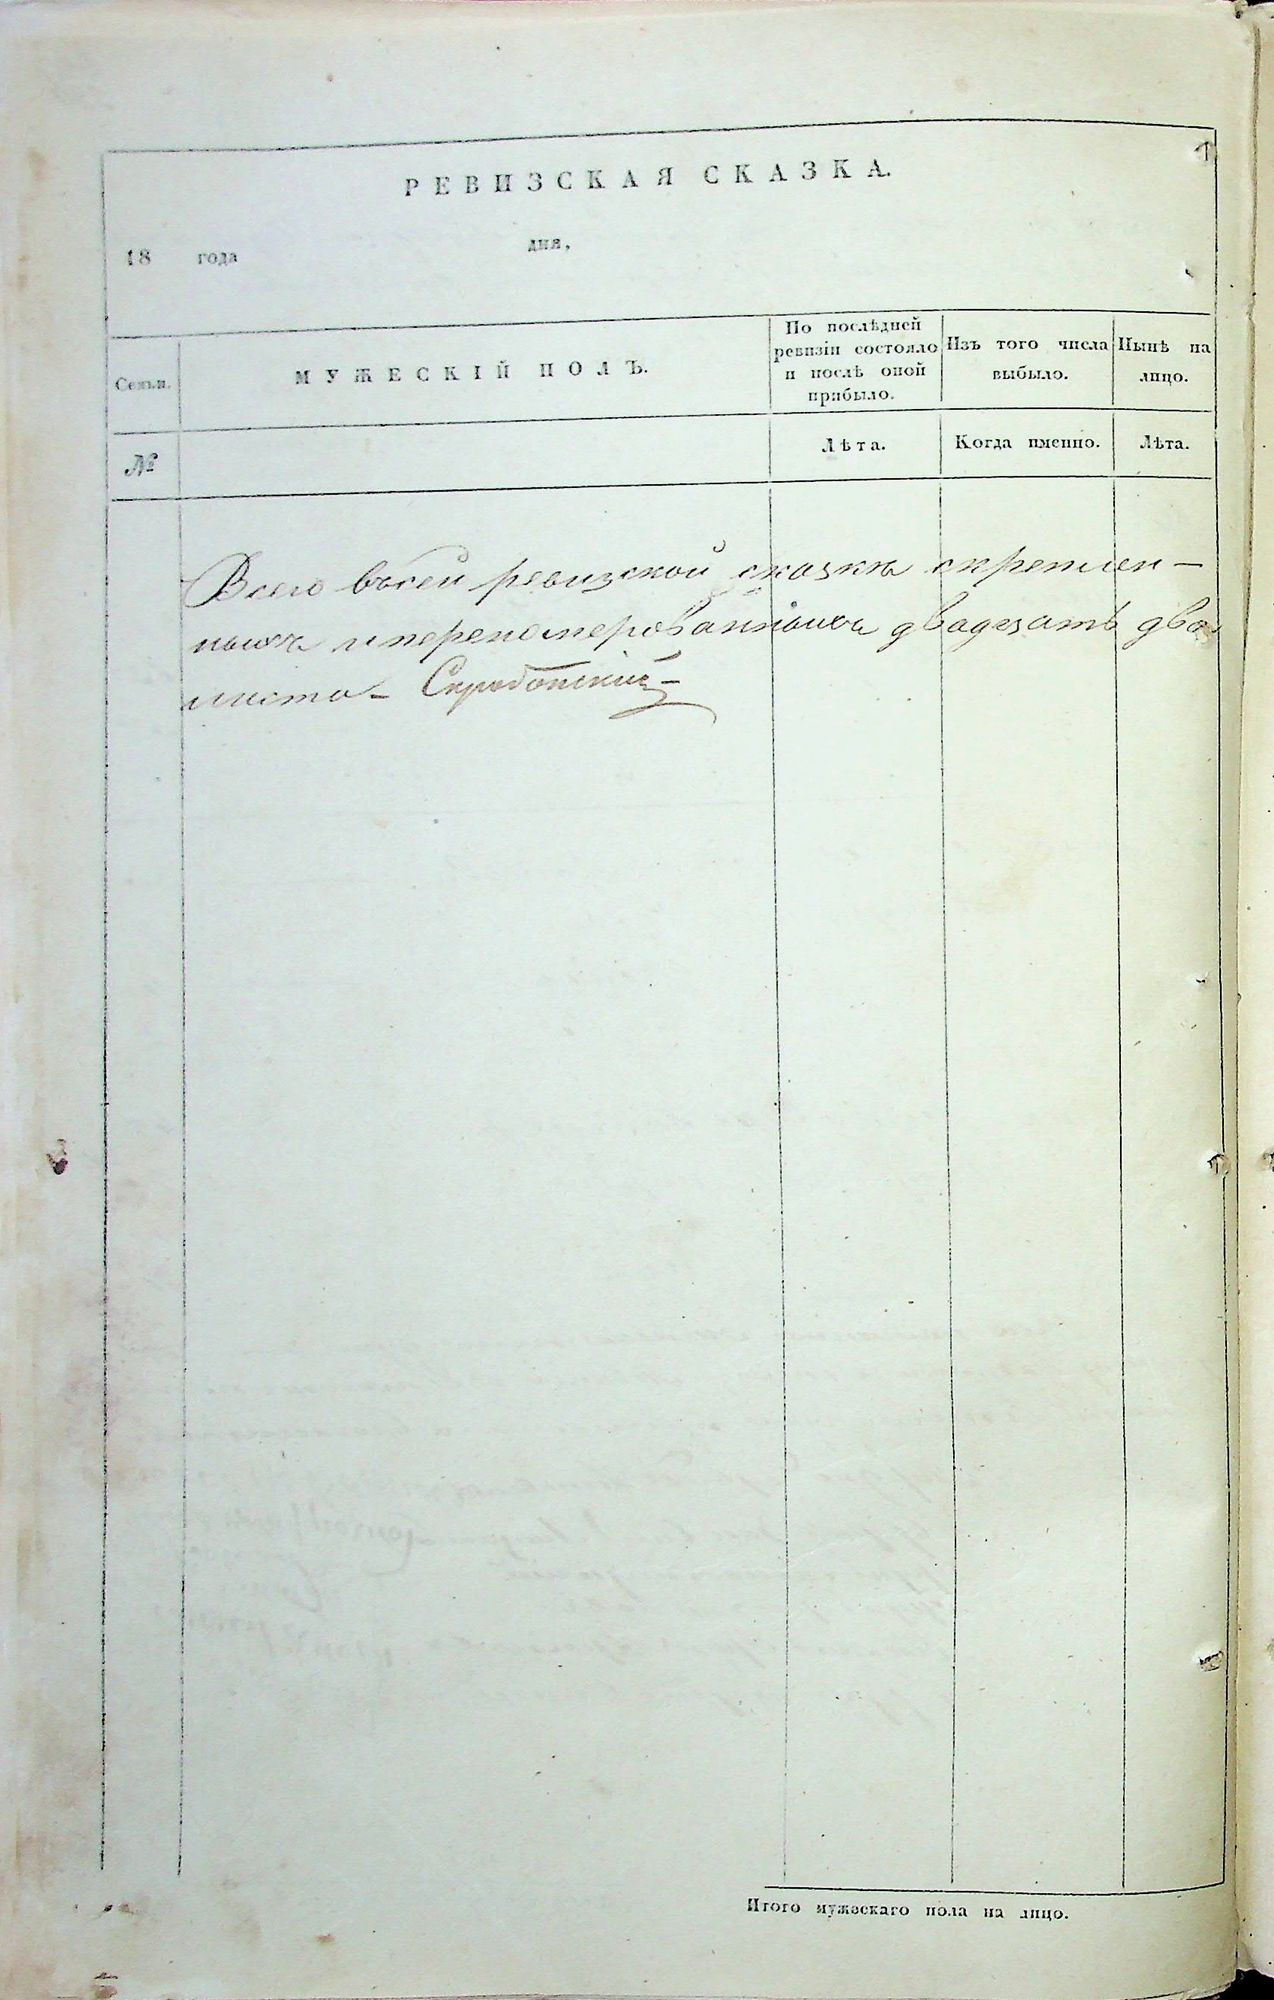 РЕВИЗСКАЯ СКАЗКА.
18 года дня,
Семьи.
МУЖЕСКІЙ ПОЛЪ.
По послѣдней ревизіи состояло и послѣ оной прибыло.
Изъ того числа выбыло.
Нынѣ на лицо.
№
Лѣта.
Когда именно.
Лѣта.
Всего въ сей ревизской сказкѣ скреплен-
ныхъ и перепомерованныхъ двадцать два
листа - Скробанскій
Итого мужескаго пола на лицо.